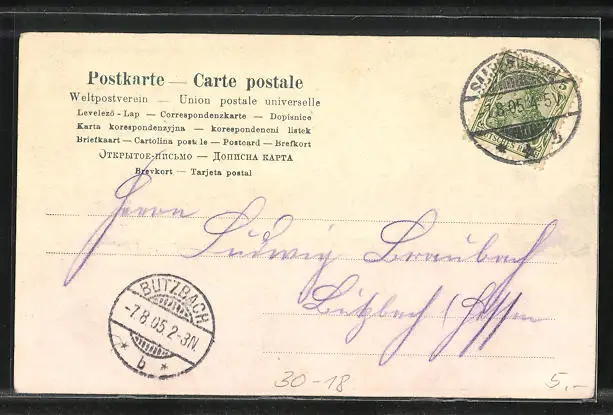 Postkarte — Carte postale
Weltpostverein — Union postale universelle
Levelező-Lap — Correspondenzkarte — Dopisnice
Karta korespondenzyjna — korespondencni listek
Briefkaart — Cartolina postale — Postcard — Brefkort
ОТКРЫТОЕ-ПИСЬМО — ДОПИСНА КАРТА
Brevkort — Tarjeta postal
8.05. 4-5V.
Herrn
Ludwig Braubach
Butzbach (Hessen
BUTZBACH
-7.8.05. 2-3N.
* b *
30-18
5,-